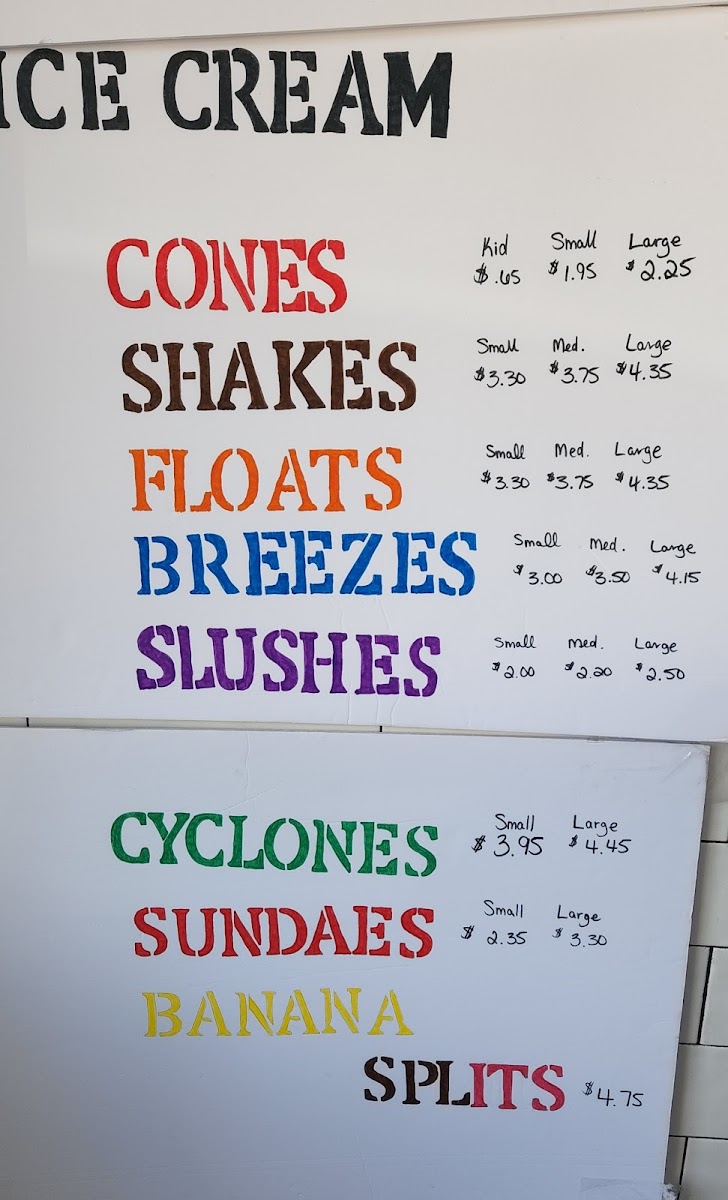 ICE CREAM
CONES
Kid Small Large
$.65 $1.95 $2.25
SHAKES
Small Med. Large
$3.30 $3.75 $4.35
FLOATS
Small Med. Large
$3.30 $3.75 $4.35
BREEZES
Small Med. Large
$3.00 $3.50 $4.15
SLUSHES
Small Med. Large
$2.00 $2.20 $2.50
CYCLONES
Small Large
$3.95 $4.45
SUNDAES
Small Large
$2.35 $3.30
BANANA
SPLITS $4.75